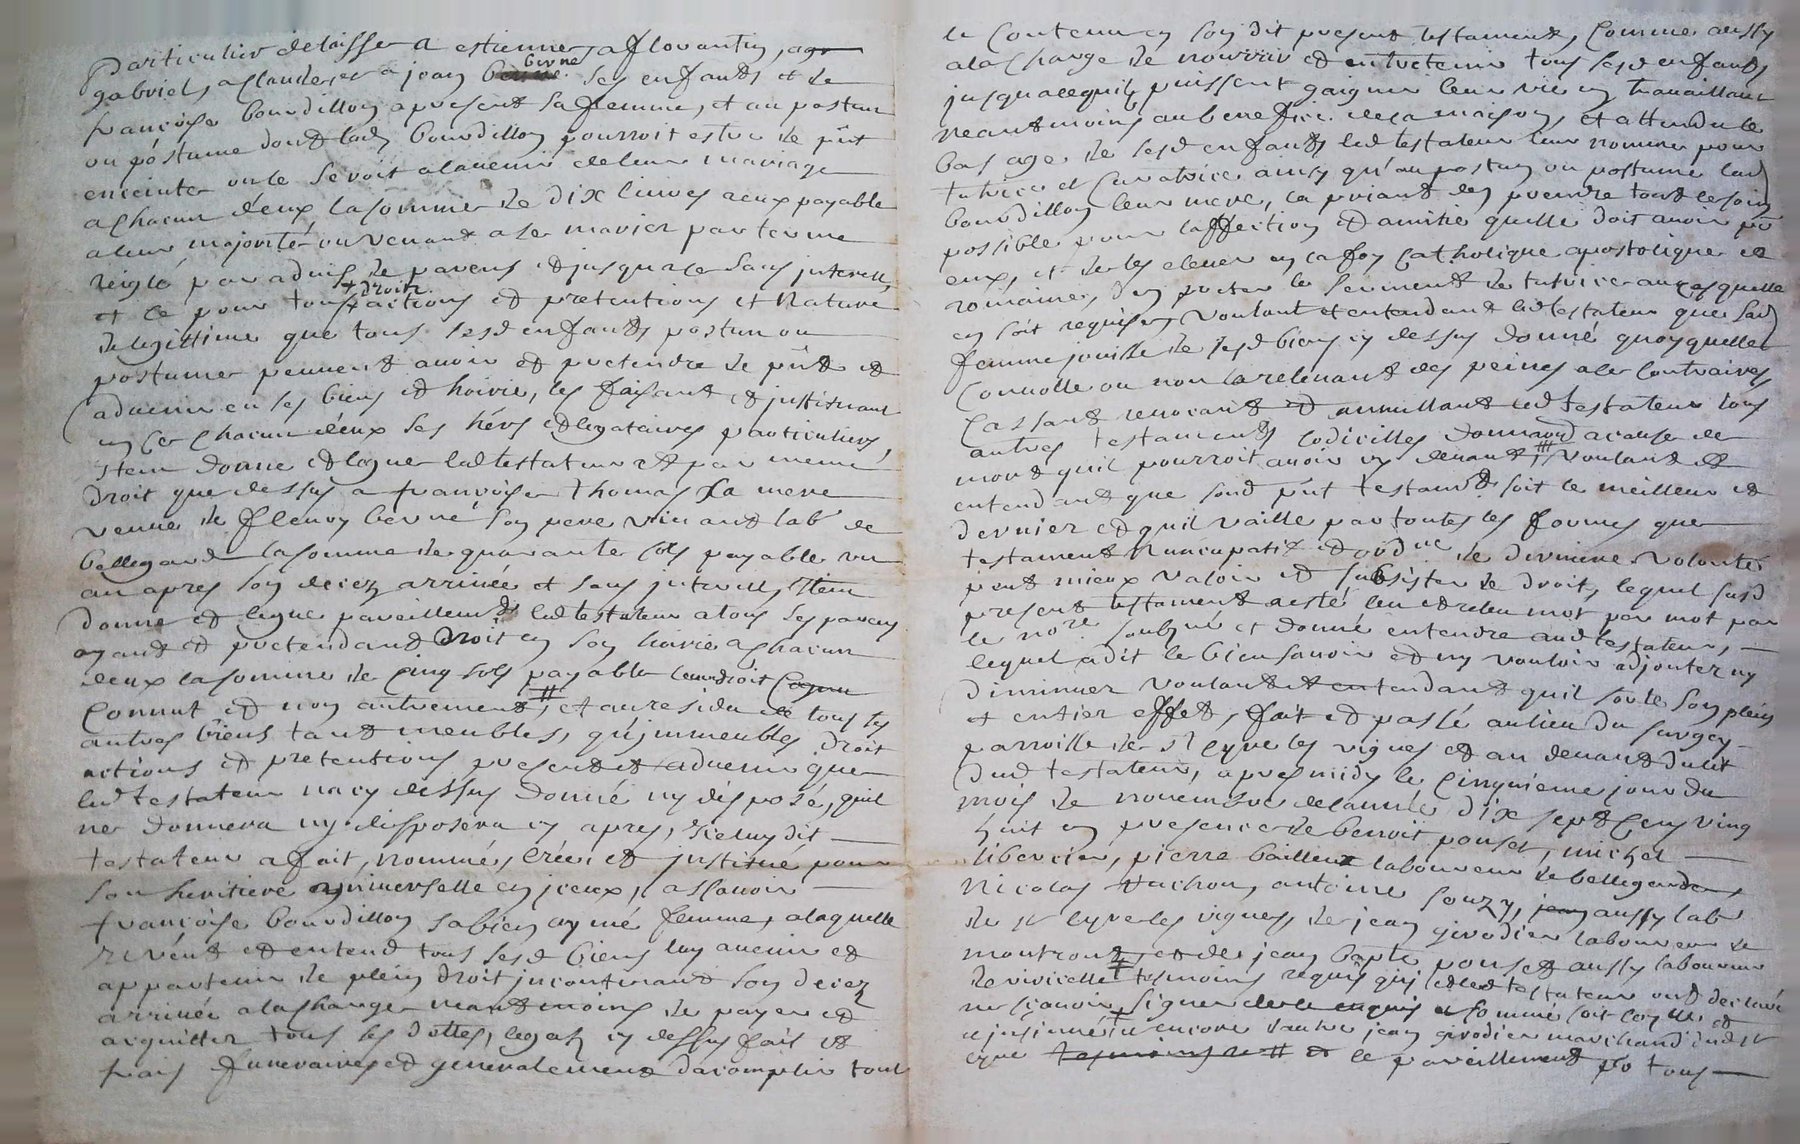 Particulier delaisser a estienne, a florantin, a
berne
gabriel, a claude, et a jean ses enfants et de
francoise bourdillon a present sa femme, et au postun
ou postume dont lad bourdillon pourroit estre de pnt
enceinte ou le seroit aladvenir de leur mariage
a chacun d'eux la somme de dix livres a eux payable
a leur majorité ou venant a se marier par terme
reiglé par advis de parens et jusqua ce sans interest,
+ droits
et ce pour tous actions et pretentions et nature
de legittime que tous sesd enfants postun ou
postume peuvent avoir et pretendre de pnt et
advenir en ses biens et hoirie, les faisant et instituant
en ce chacun d'eux ses hers et legataires particuliers,
Item donne et legue led testateur et par meme
droit que dessus a francoise thomas sa mere
veuve de fleury berne son pere vivant lab de
bellegarde la somme de quarante sols payable un
an apres son decez arrivée et sans interest, Item
donne et legue pareillement led testateur a tous ses parens
ayant et pretendant droit en son hoirie a chacun
deux la somme de cinq sols payable leur droit
connut et non autrement, et au residu de tous ses
autres biens tant meubles, qu'immeubles droit
actions et pretentions present et advenir que
led testateur na cy dessus donné ny desposé, quil
ne donnera ny disposera cy apres, Iceluy dit
testateur a fait, nommé, créé et institue pour
son heritiere universelle en iceux, a scavoir
francoise bourdillon sa bien aymé femme, a laquelle
il veut et entend tous sesd biens luy avenir et
appartenir de plein droit incontinant son decez
arrivée a la charge neantmoins de payer et
acquitter tous ses dettes, legats cy dessus fait et
frais funeraires et generalement dacomplir tout
le contenu en son dit present testament, comme aussy
a la charge de nourrir et entretenir tous sesd enfants
jusqua ce quils puissent gaigner leur vie en travaillant
neantmoins au benefice de la maison, et attendu le
bas age de sesd enfants led testateur leur nomme pour
tutrice et curatrice ainsy qu'au postun ou postume lad
bourdillon leur mere, la priant den prendre tout le soin
possible pour laffection et amitié quelle doit avoir po
eux, et de les elever en la foy catholique apostolique et
romaine, den prester le serment de tutrice au cas quelle
en soit requise, voulant et entendant led testateur que sad
femme jouisse de sesd biens cy dessus donné quoy quelle
convolle ou non la relevant des peines a ce contraires
cassant revocant et annullant led testateur tous
autres testaments codicilles donnaond a cause de
mort quil pourroit avoir cy devant, voulant et
entendant que sond pnt testamt soit le meilleur et
dernier et quil vaille par toutes les formes que
testament nuncupatif et ordre de derniere volonté
peut mieux valoir et subsister de droit, lequel susd
present testament a esté leu et releu mot par mot par
le nore soubzné et donné entendre aud testateur,
lequel a dit le bien scavoir et ny vouloir adjouter ny
diminuer voulant et entendant quil sorte son plein
et entier effet, fait et passé au lieu du surgey
parroisse de st cyre les vignes et au devant dudit
dud testateur, apres midy le cinquieme jour du
mois de novembre de lannée dix sept cens ving
huit en presence de benoit ponset, michel
libercier, pierre bailleux laboureur de bellegarde,
nicolas vachon, antoine souzy, aussy lab
de st cyre les vignes, de jean girodier laboureur de
montrond, et de jean bapte ponset aussy laboureur
de rivicelle tesmoins requis qui et led testateur ont declaré
ne scavoir signer de ce enquis et sommé soit lors et
encore dautre jean girodier marchand dud st
cyre le pareillement po tous